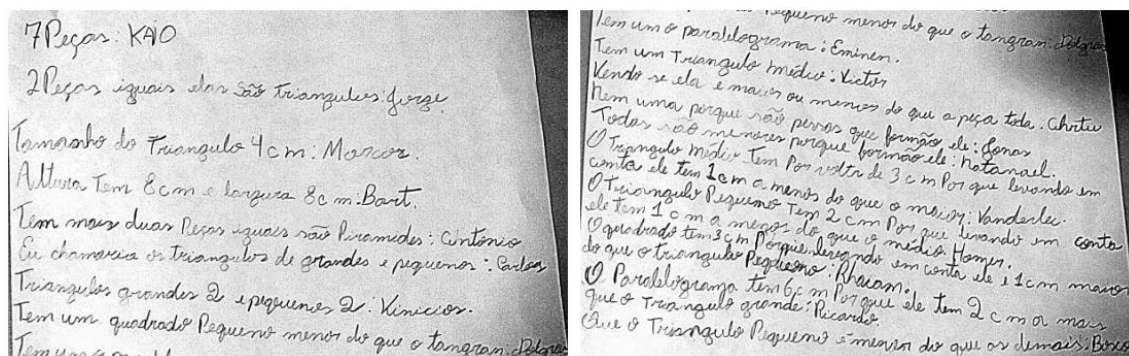 7 Peças: KAIO
2 Peças iguais elas são triangulos: Jorge
Tamanho do Triangulo 4 cm: Marcos.
Altura Tem 8 cm e largura 8 cm: Bart.
Tem mais duas Peças iguais são Piramides: Antonio
Eu chamaria os triangulos de grandes e pequenos: Carlos
Triangulos grandes 2 e pequenos 2: Vinicios.
Tem um quadrado Pequeno menor do que o tangran.
Pequeno menor do que o tangran.
Tem um o paralelograma: Eminen.
Tem um Triangulo médio: Victor
Vendo se ela e maior ou menor do que a peça toda.
Nem uma porque são pessas que formão ele: Jonas
Todas são menores porque formão ele: Natanael.
O Triangulo médio Tem Por volta de 3 cm Por que levando em
conta ele tem 1 cm a menos do que o maior: Vanderlec.
O Triangulo Pequeno Tem 2 cm Por que levando em conta
ele tem 1 cm a menos do que o médio. Homer.
O quadrado tem 3 cm Porque levando em conta ele e 1 cm maior
do que o triangulo Pequeno: Rhaiam.
O Paralelograma tem 6 cm Por que ele tem 2 cm a mais
que o Triangulo grande: Ricardo.
Que o Triangulo Pequeno é menor do que os demais: Bosco